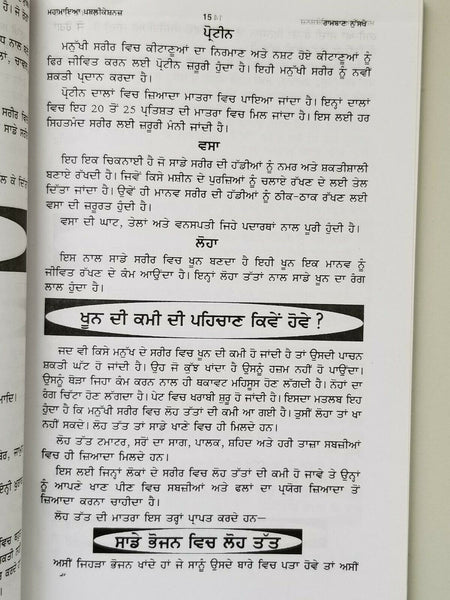 ਮਹਾਮਾਇਆ ਪਬਲੀਕੇਸ਼ਨਜ਼ 15 ਰਾਮਬਾਣ ਨੁੱਸਖੇ
ਪ੍ਰੋਟੀਨ
ਮਨੁੱਖੀ ਸਰੀਰ ਵਿਚ ਕੀਟਾਣੂਆਂ ਦਾ ਨਿਰਮਾਣ ਅਤੇ ਨਸ਼ਟ ਹੋਏ ਕੀਟਾਣੂਆਂ ਨੂੰ
ਫਿਰ ਜੀਵਿਤ ਕਰਨ ਲਈ ਪ੍ਰੋਟੀਨ ਜ਼ਰੂਰੀ ਹੁੰਦਾ ਹੈ। ਇਹੀ ਮਨੁੱਖੀ ਸਰੀਰ ਨੂੰ ਨਵੀਂ
ਸ਼ਕਤੀ ਪ੍ਰਦਾਨ ਕਰਦਾ ਹੈ।
ਪ੍ਰੋਟੀਨ ਦਾਲਾਂ ਵਿਚ ਜ਼ਿਆਦਾ ਮਾਤਰਾ ਵਿਚ ਪਾਇਆ ਜਾਂਦਾ ਹੈ। ਇਨ੍ਹਾਂ ਦਾਲਾਂ
ਵਿਚ ਇਹ 20 ਤੋਂ 25 ਪ੍ਰਤਿਸ਼ਤ ਦੀ ਮਾਤਰਾ ਵਿਚ ਮਿਲ ਜਾਂਦਾ ਹੈ। ਇਸ ਲਈ ਹਰ
ਸਿਹਤਮੰਦ ਸਰੀਰ ਲਈ ਜ਼ਰੂਰੀ ਮੰਨੀ ਜਾਂਦੀ ਹੈ।
ਵਸਾ
ਇਹ ਇਕ ਚਿਕਨਾਈ ਹੈ ਜੋ ਸਾਡੇ ਸਰੀਰ ਦੀ ਹੱਡੀਆਂ ਨੂੰ ਨਮਰ ਅਤੇ ਸ਼ਕਤੀਸ਼ਾਲੀ
ਬਣਾਏ ਰੱਖਦੀ ਹੈ। ਜਿਵੇਂ ਕਿਸੇ ਮਸ਼ੀਨ ਦੇ ਪੁਰਜ਼ਿਆਂ ਨੂੰ ਚਲਾਏ ਰੱਖਣ ਦੇ ਲਈ ਤੇਲ
ਦਿੱਤਾ ਜਾਂਦਾ ਹੈ। ਉਵੇਂ ਹੀ ਮਾਨਵ ਸਰੀਰ ਦੀ ਹੱਡੀਆਂ ਨੂੰ ਠੀਕ-ਠਾਕ ਰੱਖਣ ਲਈ
ਵਸਾ ਦੀ ਜ਼ਰੂਰਤ ਹੁੰਦੀ ਹੈ।
ਵਸਾ ਦੀ ਘਾਟ, ਤੇਲਾਂ ਅਤੇ ਵਨਸਪਤੀ ਜਿਹੇ ਪਦਾਰਥਾਂ ਨਾਲ ਪੂਰੀ ਹੁੰਦੀ ਹੈ।
ਲੋਹਾ
ਇਸ ਨਾਲ ਸਾਡੇ ਸਰੀਰ ਵਿਚ ਖੂਨ ਬਣਦਾ ਹੈ ਇਹੀ ਖੂਨ ਇਕ ਮਾਨਵ ਨੂੰ
ਜੀਵਿਤ ਰੱਖਣ ਦੇ ਕੰਮ ਆਉਂਦਾ ਹੈ। ਇਨ੍ਹਾਂ ਲੋਹਾ ਤੱਤਾਂ ਨਾਲ ਸਾਡੇ ਖੂਨ ਦਾ ਰੰਗ
ਲਾਲ ਹੁੰਦਾ ਹੈ।
ਖੂਨ ਦੀ ਕਮੀ ਦੀ ਪਹਿਚਾਣ ਕਿਵੇਂ ਹੋਵੇ ?
ਜਦ ਵੀ ਕਿਸੇ ਮਨੁੱਖ ਦੇ ਸਰੀਰ ਵਿਚ ਖੂਨ ਦੀ ਕਮੀ ਹੋ ਜਾਂਦੀ ਹੈ ਤਾਂ ਉਸਦੀ ਪਾਚਨ
ਸ਼ਕਤੀ ਘੱਟ ਹੋ ਜਾਂਦੀ ਹੈ। ਉਹ ਜੋ ਕੁੱਝ ਖਾਂਦਾ ਹੈ ਉਸਨੂੰ ਹਜ਼ਮ ਨਹੀਂ ਹੋ ਪਾਉਂਦਾ।
ਉਸਨੂੰ ਥੋੜਾ ਜਿਹਾ ਕੰਮ ਕਰਨ ਨਾਲ ਹੀ ਥਕਾਵਟ ਮਹਿਸੂਸ ਹੋਣ ਲੱਗਦੀ ਹੈ। ਨੋਹਾਂ ਦਾ
ਰੰਗ ਚਿੱਟਾ ਹੋਣ ਲੱਗਦਾ ਹੈ। ਪੇਟ ਵਿਚ ਖਰਾਬੀ ਸ਼ੁਰੂ ਹੋ ਜਾਂਦੀ ਹੈ। ਇਸਦਾ ਮਤਲਬ ਇਹ
ਹੁੰਦਾ ਹੈ ਕਿ ਮਨੁੱਖੀ ਸਰੀਰ ਵਿਚ ਲੋਹ ਤੱਤਾਂ ਦੀ ਕਮੀ ਆ ਗਈ ਹੈ। ਤੁਸੀਂ ਲੋਹਾ ਤਾਂ ਖਾ
ਨਹੀਂ ਸਕਦੇ। ਲੋਹ ਤੱਤ ਤਾਂ ਸਾਡੇ ਖਾਣੇ ਵਿਚ ਹੀ ਮਿਲਦੇ ਹਨ।
ਲੋਹ ਤੱਤ ਟਮਾਟਰ, ਸਰੋਂ ਦਾ ਸਾਗ, ਪਾਲਕ, ਸ਼ਹਿਦ ਅਤੇ ਹਰੀ ਤਾਜ਼ਾ ਸਬਜ਼ੀਆਂ
ਵਿਚ ਹੀ ਜ਼ਿਆਦਾ ਮਿਲਦੇ ਹਨ।
ਇਸ ਲਈ ਜਿਨ੍ਹਾਂ ਲੋਕਾਂ ਦੇ ਸਰੀਰ ਵਿਚ ਲੋਹ ਤੱਤਾਂ ਦੀ ਕਮੀ ਹੋ ਜਾਵੇ ਤੇ ਉਨ੍ਹਾਂ
ਨੂੰ ਆਪਣੇ ਖਾਣ ਪੀਣ ਵਿਚ ਸਬਜ਼ੀਆਂ ਅਤੇ ਫਲਾਂ ਦਾ ਪ੍ਰਯੋਗ ਜ਼ਿਆਦਾ ਤੋਂ
ਜ਼ਿਆਦਾ ਕਰਨਾ ਚਾਹੀਦਾ ਹੈ।
ਲੋਹ ਤੱਤ ਦੀ ਮਾਤਰਾ ਇਸ ਤਰ੍ਹਾਂ ਪ੍ਰਾਪਤ ਕਰਦੇ ਹਨ—
ਸਾਡੇ ਭੋਜਨ ਵਿਚ ਲੋਹ ਤੱਤ
ਅਸੀਂ ਜਿਹੜਾ ਭੋਜਨ ਖਾਂਦੇ ਹਾਂ ਜੇ ਸਾਨੂੰ ਉਸਦੇ ਬਾਰੇ ਵਿਚ ਪਤਾ ਹੋਵੇ ਤਾਂ ਅਸੀਂ